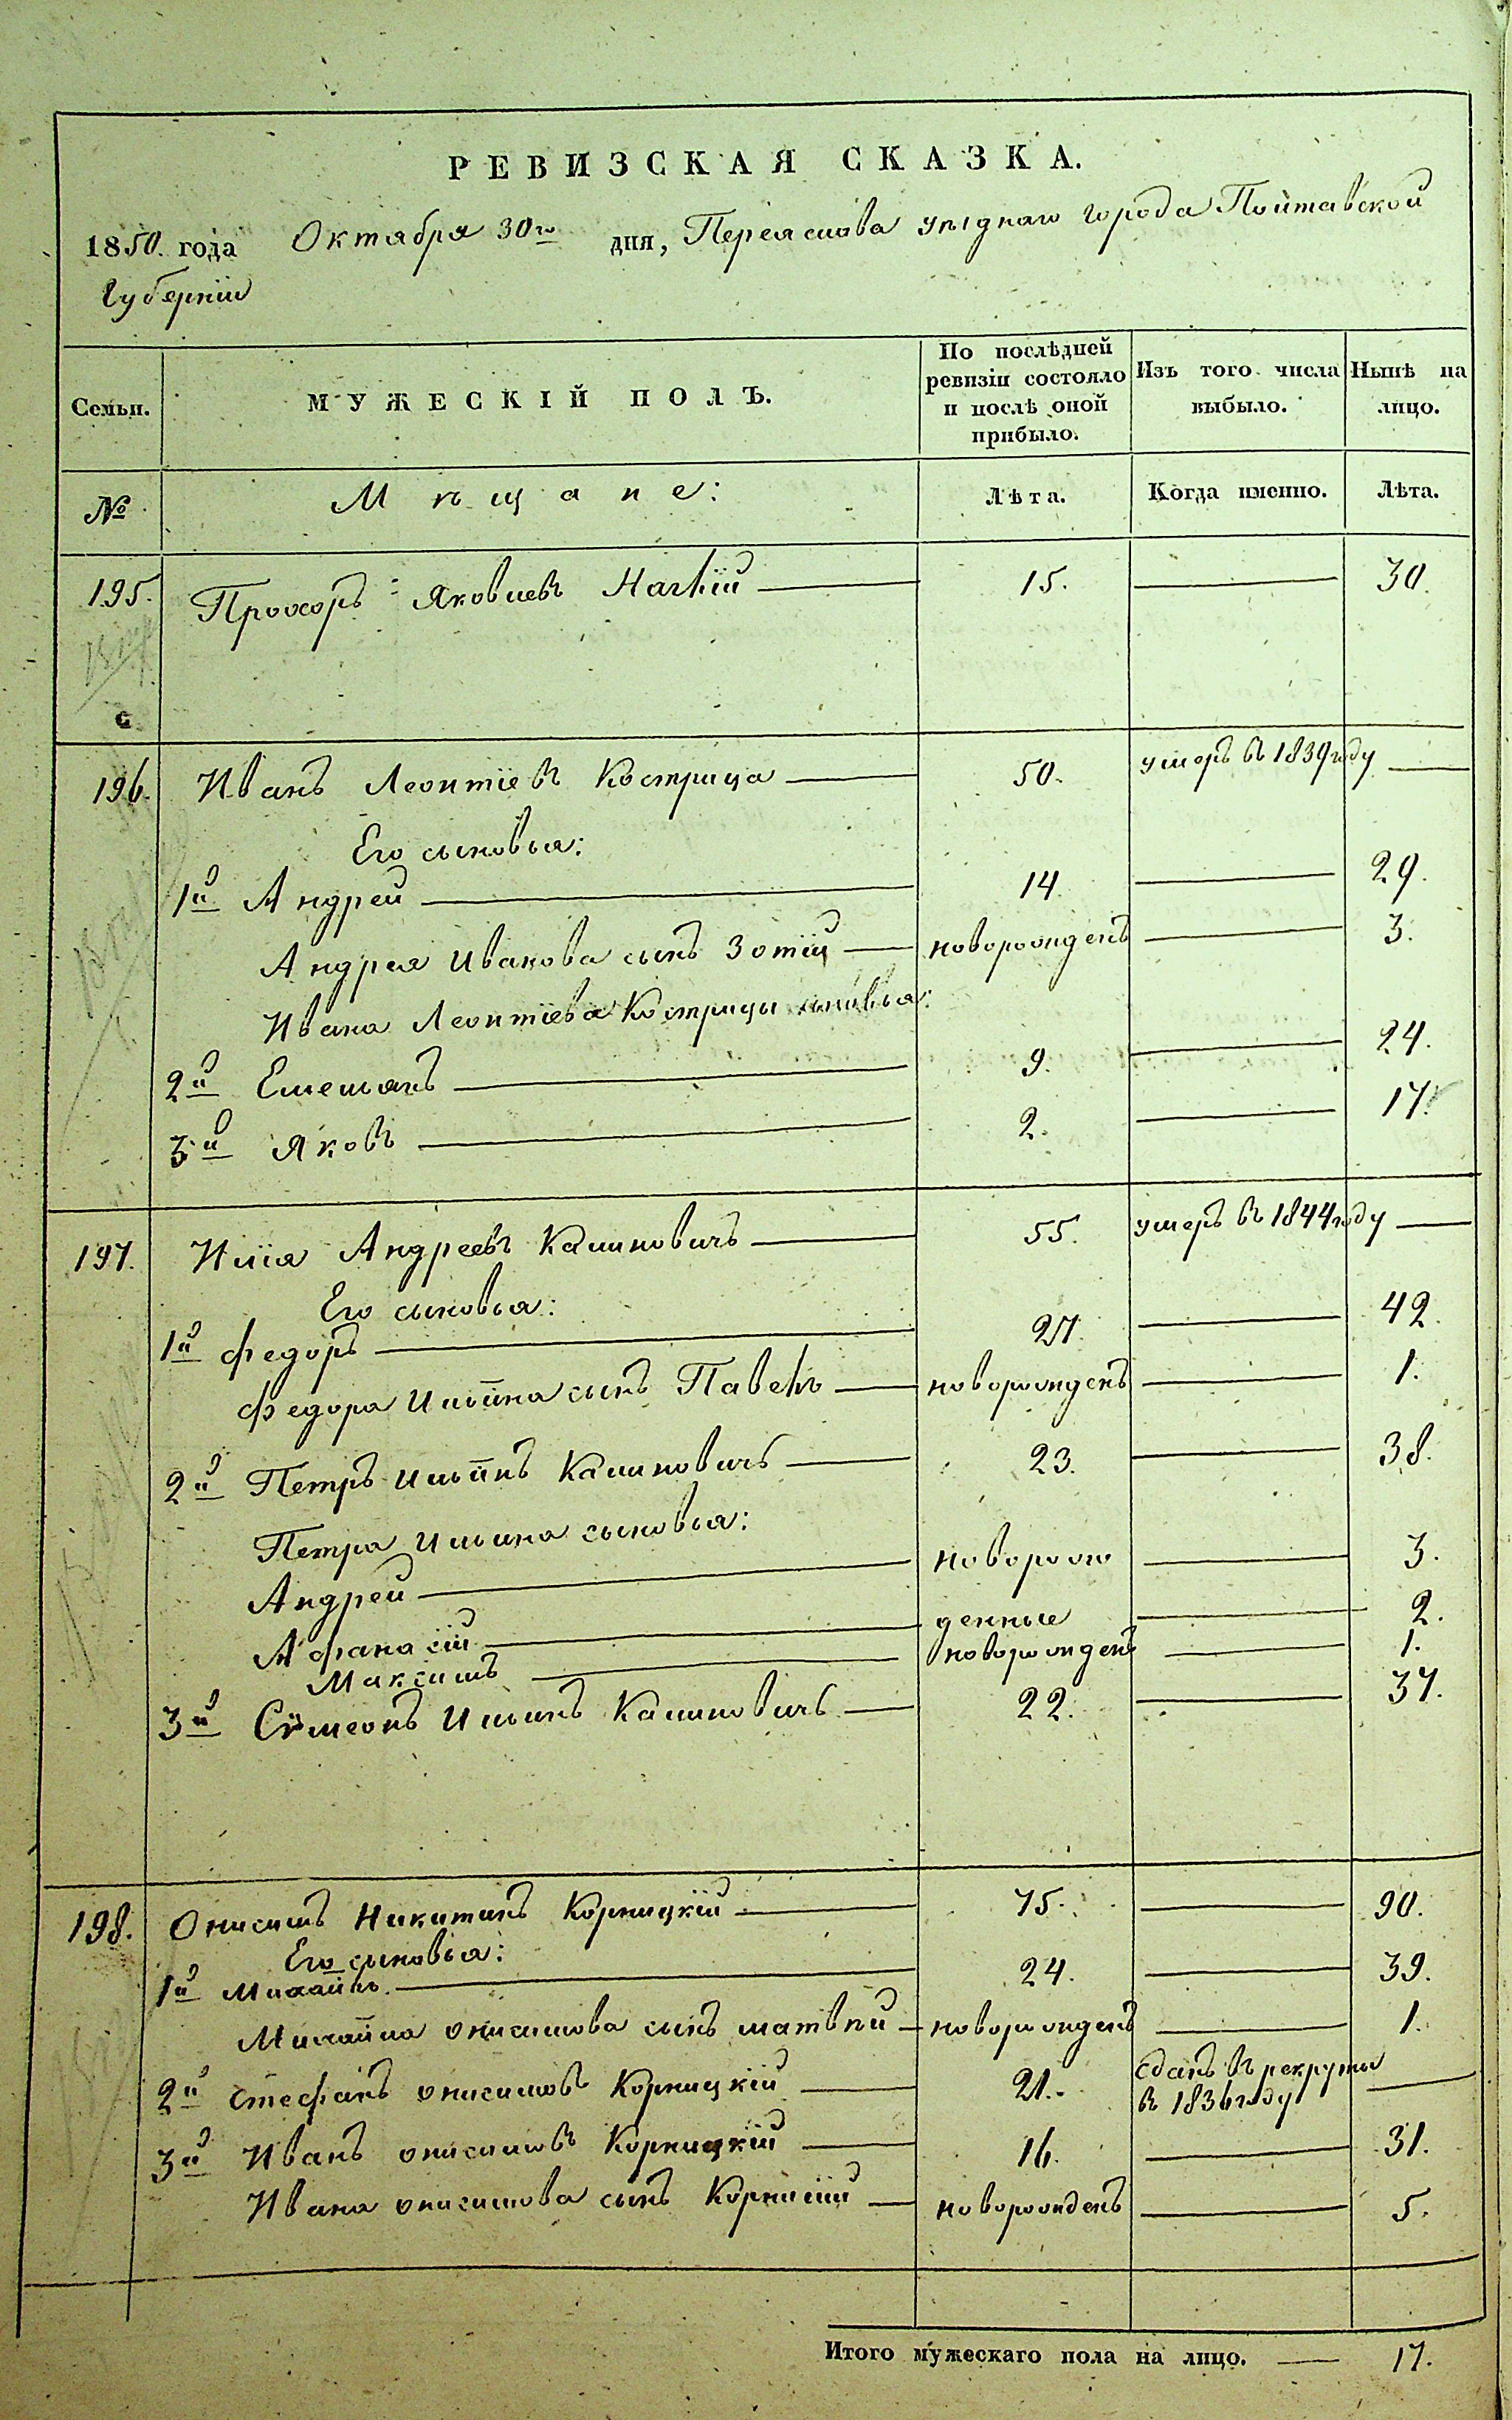 РЕВИЗСКАЯ СКАЗКА.
1850. года Октября 30го дня, Переяслова уѣзднаго города Полтавской
Губерніи
Семьи. МУЖЕСКІЙ ПОЛЪ. По послѣдней ревизіи состояло и послѣ оной прибыло. Изъ того числа выбыло. Нынѣ на лицо.
№ Мѣщане: Лѣта. Когда именно. Лѣта.
195. Прохоръ Яковлевъ 15. 30.
196. Иванъ Леонтіевъ Кострица 50. умеръ въ 1839 году
Его сыновья:
1й Андрей 14. 29.
Андрея Иванова сынъ Зотій новорожденъ 3.
Ивана Леонтіева Кострицы сыновья:
2й Емельянъ 9. 24.
3й Яковъ 2. 17.
197. Илія Андреевъ Калиновичъ 55. умеръ въ 1844 году
Его сыновья:
1й Федоръ 27. 42.
Федора Ильина сынъ Павелъ новорожденъ 1.
2й Петръ Ильинъ Калиновичъ 23. 38.
Петра Ильина сыновья:
Андрей новорож 3.
Афанасій денные 2.
Максимъ новорожденъ 1.
3й Сѵмеонъ Ильинъ Калиновичъ 22. 37.
198. Онисимъ Никитинъ Корницкій 75. 90.
Его сыновья:
1й Михаилъ 24. 39.
Михайла Онисимова сынъ Матвѣй новорожденъ 1.
2й Стефанъ Онисимовъ Корницкій 21. сданъ въ рекруты
въ 1836 году
3й Иванъ Онисимовъ Корницкій 16. 31.
Ивана Онисимова сынъ Корнилій новорожденъ 5.
Итого мужескаго пола на лицо. 17.